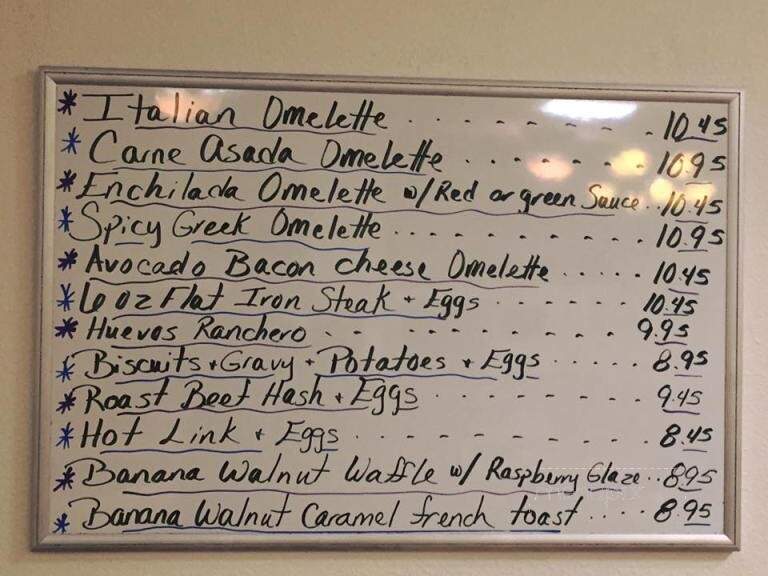 * Italian Omelette . . . . . . . . . . 10.45
* Carne Asada Omelette . . . . . . . . 10.95
* Enchilada Omelette w/Red or green Sauce .. 10.45
* Spicy Greek Omelette . . . . . . . . . . 10.95
* Avocado Bacon cheese Omelette . . . . . 10.45
* 6 oz Flat Iron Steak + Eggs . . . . . . . 10.45
* Huevos Ranchero . . . . . . . . . . 9.95
* Biscuits + Gravy + Potatoes + Eggs . . . . . 8.95
* Roast Beef Hash + Eggs . . . . . . . . 9.45
* Hot Link + Eggs . . . . . . . . . . 8.45
* Banana Walnut Waffle w/ Raspberry Glaze .. 8.95
* Banana Walnut Caramel french toast . . . . 8.95